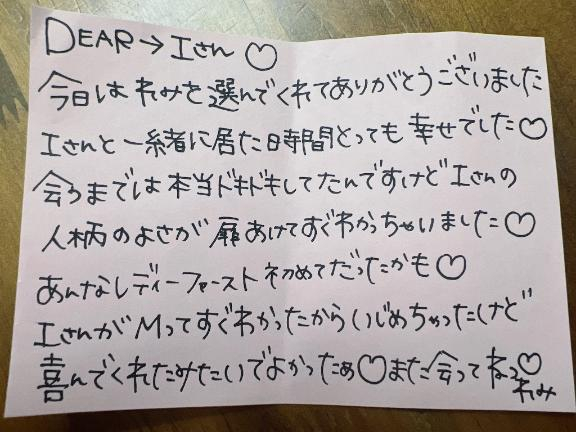 DEAR→Iさん♡
今日はれみを選んでくれてありがとうございました
Iさんと一緒に居た時間とっても幸せでした♡
会うまでは本当ドキドキしてたんですけどIさんの
人柄のよさが扉あけてすぐわかっちゃいました♡
あんなレディーファースト初めてだったかも♡
IさんがMってすぐわかったからいじめちゃったけど
喜んでくれたみたいでよかったぁ♡また会ってねっ♡
れみ